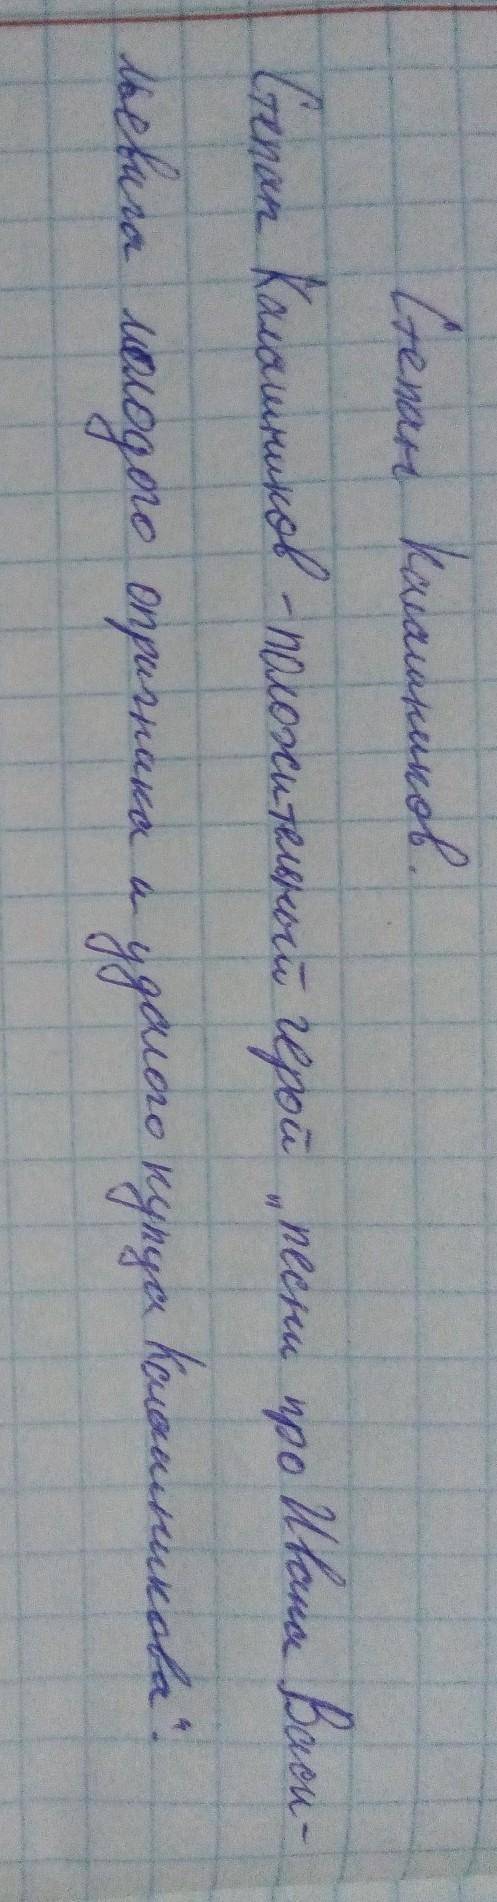 Степан Калашников.
Степан Калашников - положительный герой „песни про Ивана Васи-
льевича молодого опричника и удалого купца Калашникова".